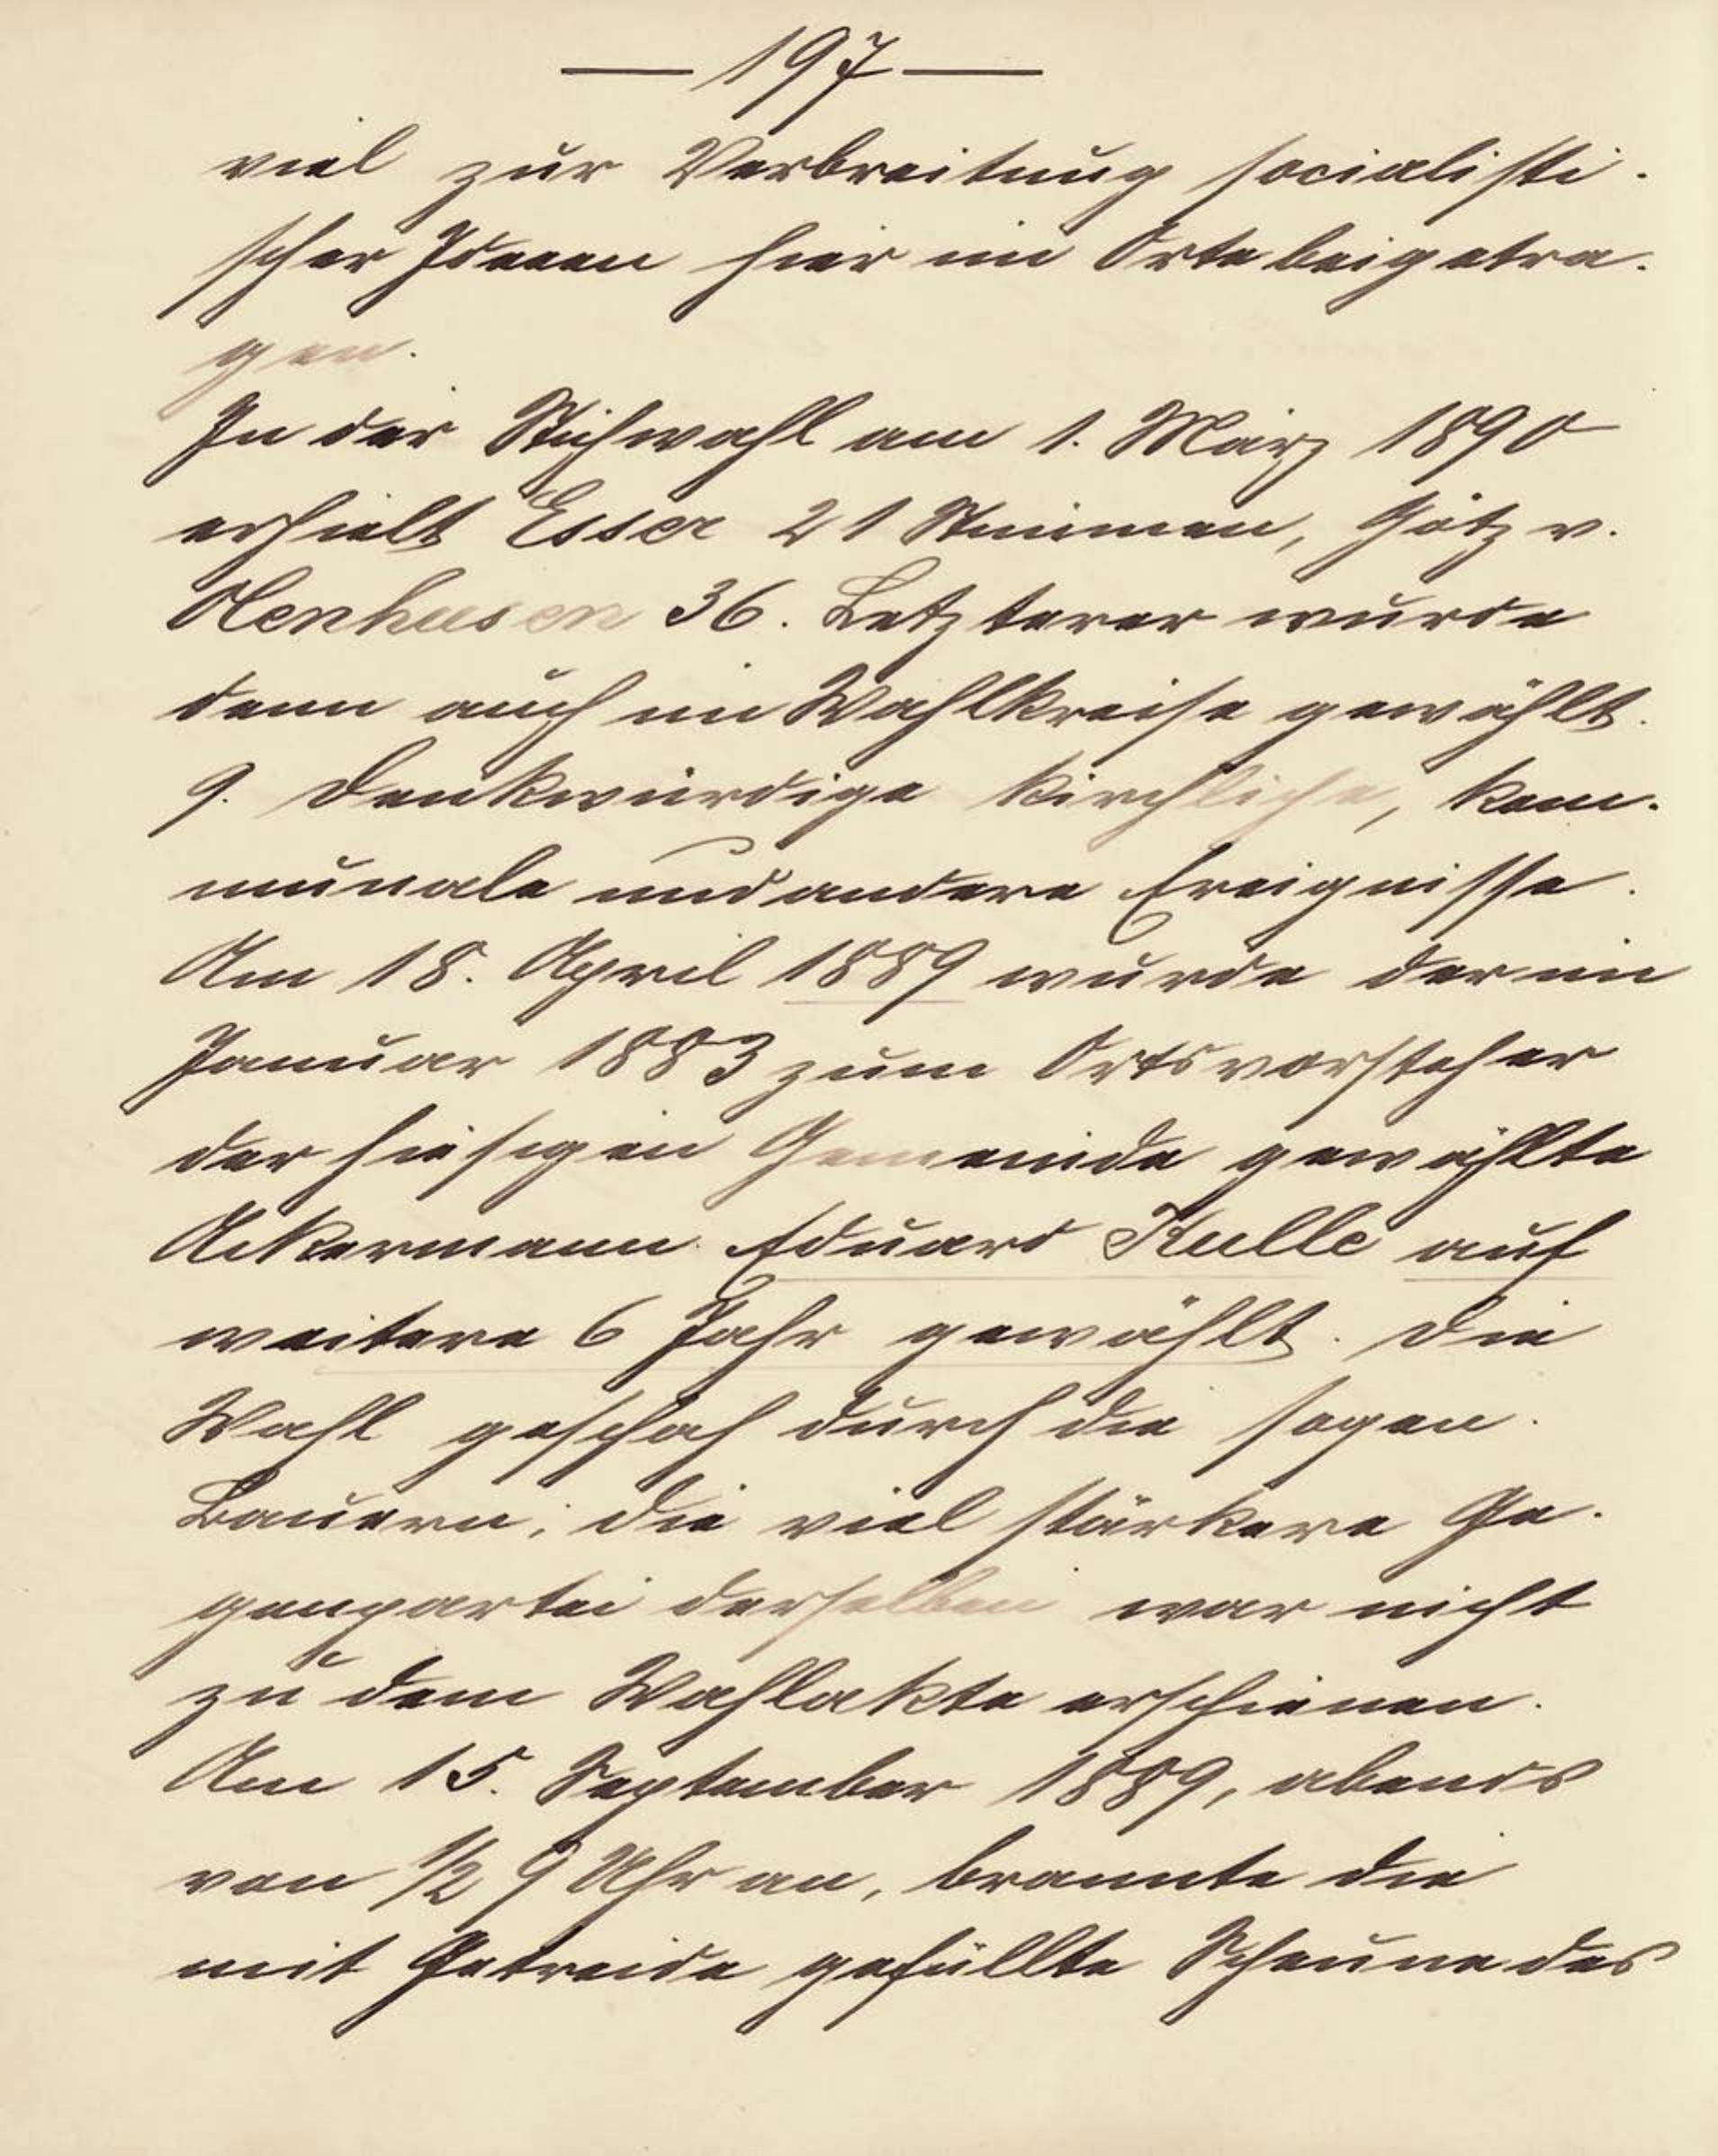 — 197 —
viel zur Verbreitung socialisti-
scher Ideeen hier im Orte beigetra-
gen.
In der Stichwahl am 1. März 1890
erhielt Esser 21 Stimmen, Götz v.
Olenhusen 36. Letzterer wurde
denn auch im Wahlkreise gewählt.
9. Denkwürdige kirchliche, kom-
munale und andere Ereignisse.
Am 18. April 1889 wurde der im
Januar 1883 zum Ortsvorsteher
der hiesigen Gemeinde gewählte
Ackermann Eduard Kulle auf
weitere 6 Jahr gewählt. Die
Wahl geschah durch die sogen.
Bauern; die viel stärkere Ge-
genpartei derselben war nicht
zu dem Wahlakte erschienen.
Am 15. September 1889, abends
von ½ 9 Uhr an, brannte die
mit Getreide gefüllte Scheune des